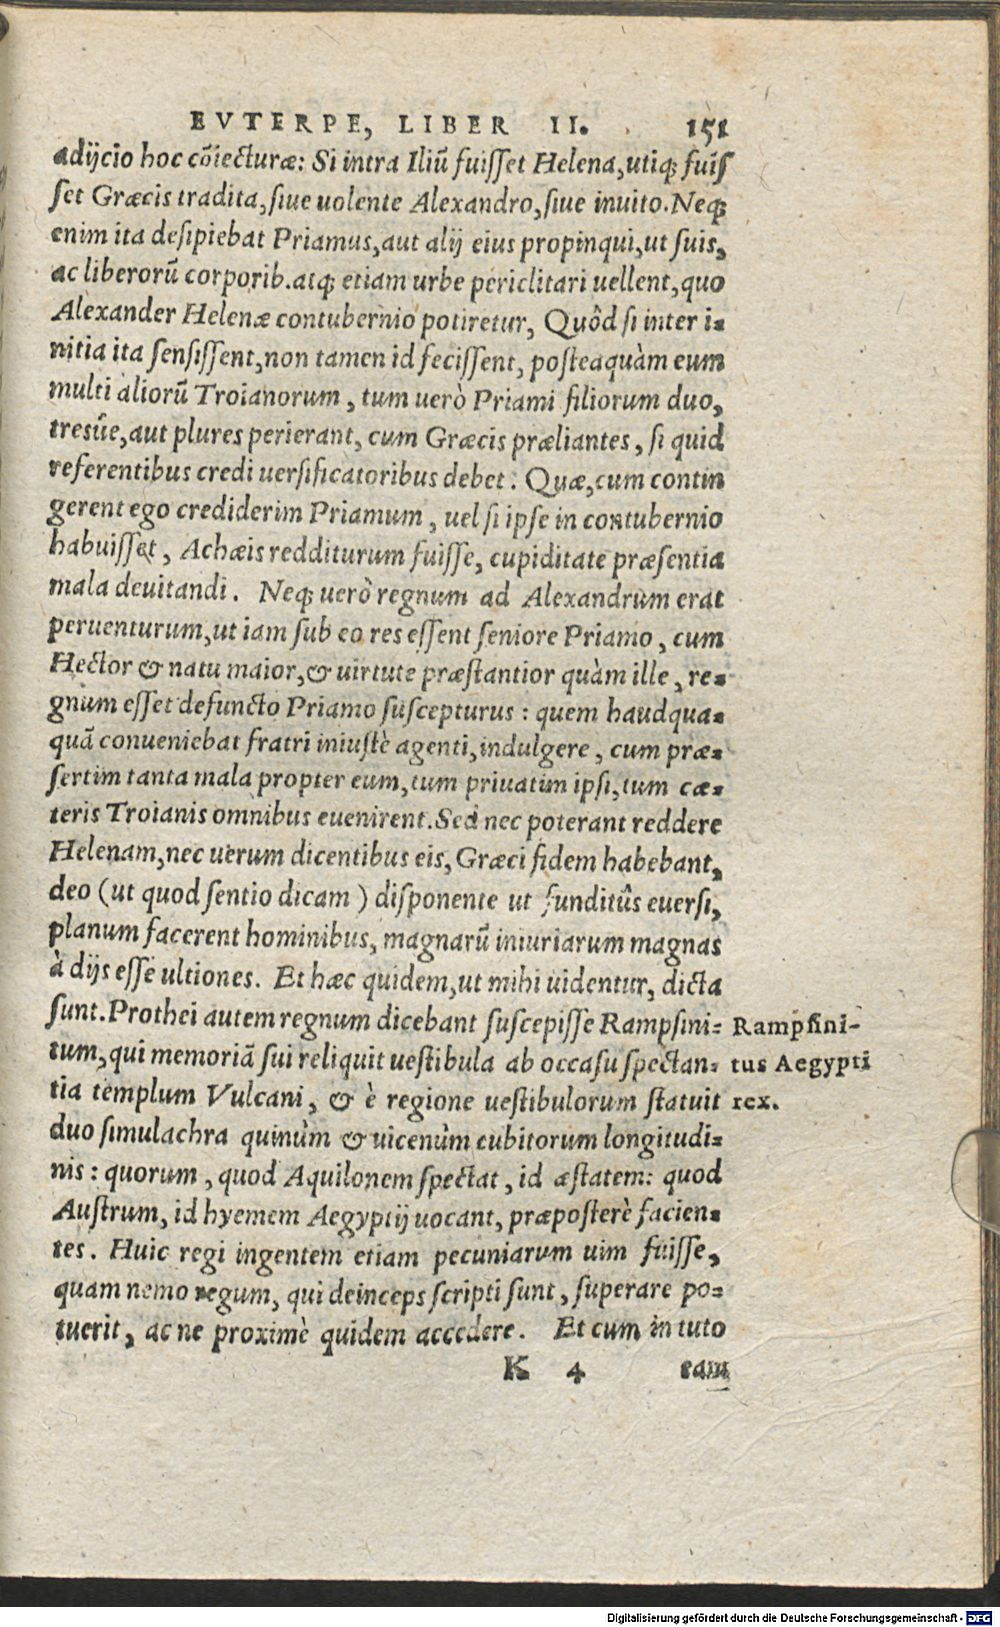 EVTERPE, LIBER II. 151
adijcio hoc cõiecturæ: Si intra Iliũ fuisset Helena, utiq; fuis
set Græcis tradita, siue uolente Alexandro, siue inuito. Neq;
enim ita desipiebat Priamus, aut alij eius propinqui, ut suis,
ac liberorũ corporib. atq; etiam urbe periclitari uellent, quo
Alexander Helenæ contubernio potiretur, Quôd si inter i=
nitia ita sensissent, non tamen id fecissent, posteaquàm eum
multi aliorũ Troianorum, tum uerò Priami filiorum duo,
tresûe, aut plures perierant, cum Græcis præliantes, si quid
referentibus credi uersificatoribus debet. Quæ, cum contin
gerent ego crediderim Priamum, uel si ipse in contubernio
habuisset, Achæis redditurum fuisse, cupiditate præsentia
mala deuitandi. Neq; uerò regnum ad Alexandrum erat
peruenturum, ut iam sub eo res essent seniore Priamo, cum
Hector & natu maior, & uirtute præstantior quàm ille, re=
gnum esset defuncto Priamo suscepturus: quem haudqua=
quã conueniebat fratri iniustè agenti, indulgere, cum præ=
sertim tanta mala propter eum, tum priuatim ipsi, tum cæ=
teris Troianis omnibus euenirent. Sed nec poterant reddere
Helenam, nec uerum dicentibus eis, Græci fidem habebant,
deo (ut quod sentio dicam) disponente ut funditûs euersi,
planum facerent hominibus, magnarũ iniuriarum magnas
à dijs esse ultiones. Et hæc quidem, ut mihi uidentur, dicta
sunt. Prothei autem regnum dicebant suscepisse Rampsini=
tum, qui memoriã sui reliquit uestibula ab occasu spectan=
tia templum Vulcani, & è regione uestibulorum statuit
duo simulachra quinûm & uicenûm cubitorum longitudi=
nis: quorum, quod Aquilonem spectat, id æstatem: quod
Austrum, id hyemem Aegyptij uocant, præposterè facien=
tes. Huic regi ingentem etiam pecuniarum uim fuisse,
quam nemo regum, qui deinceps scripti sunt, superare po=
tuerit, ac ne proximè quidem accedere. Et cum in tuto
K 4 eam
Rampsini-
tus Aegypti
rex.
Digitalisierung gefördert durch die Deutsche Forschungsgemeinschaft - DFG